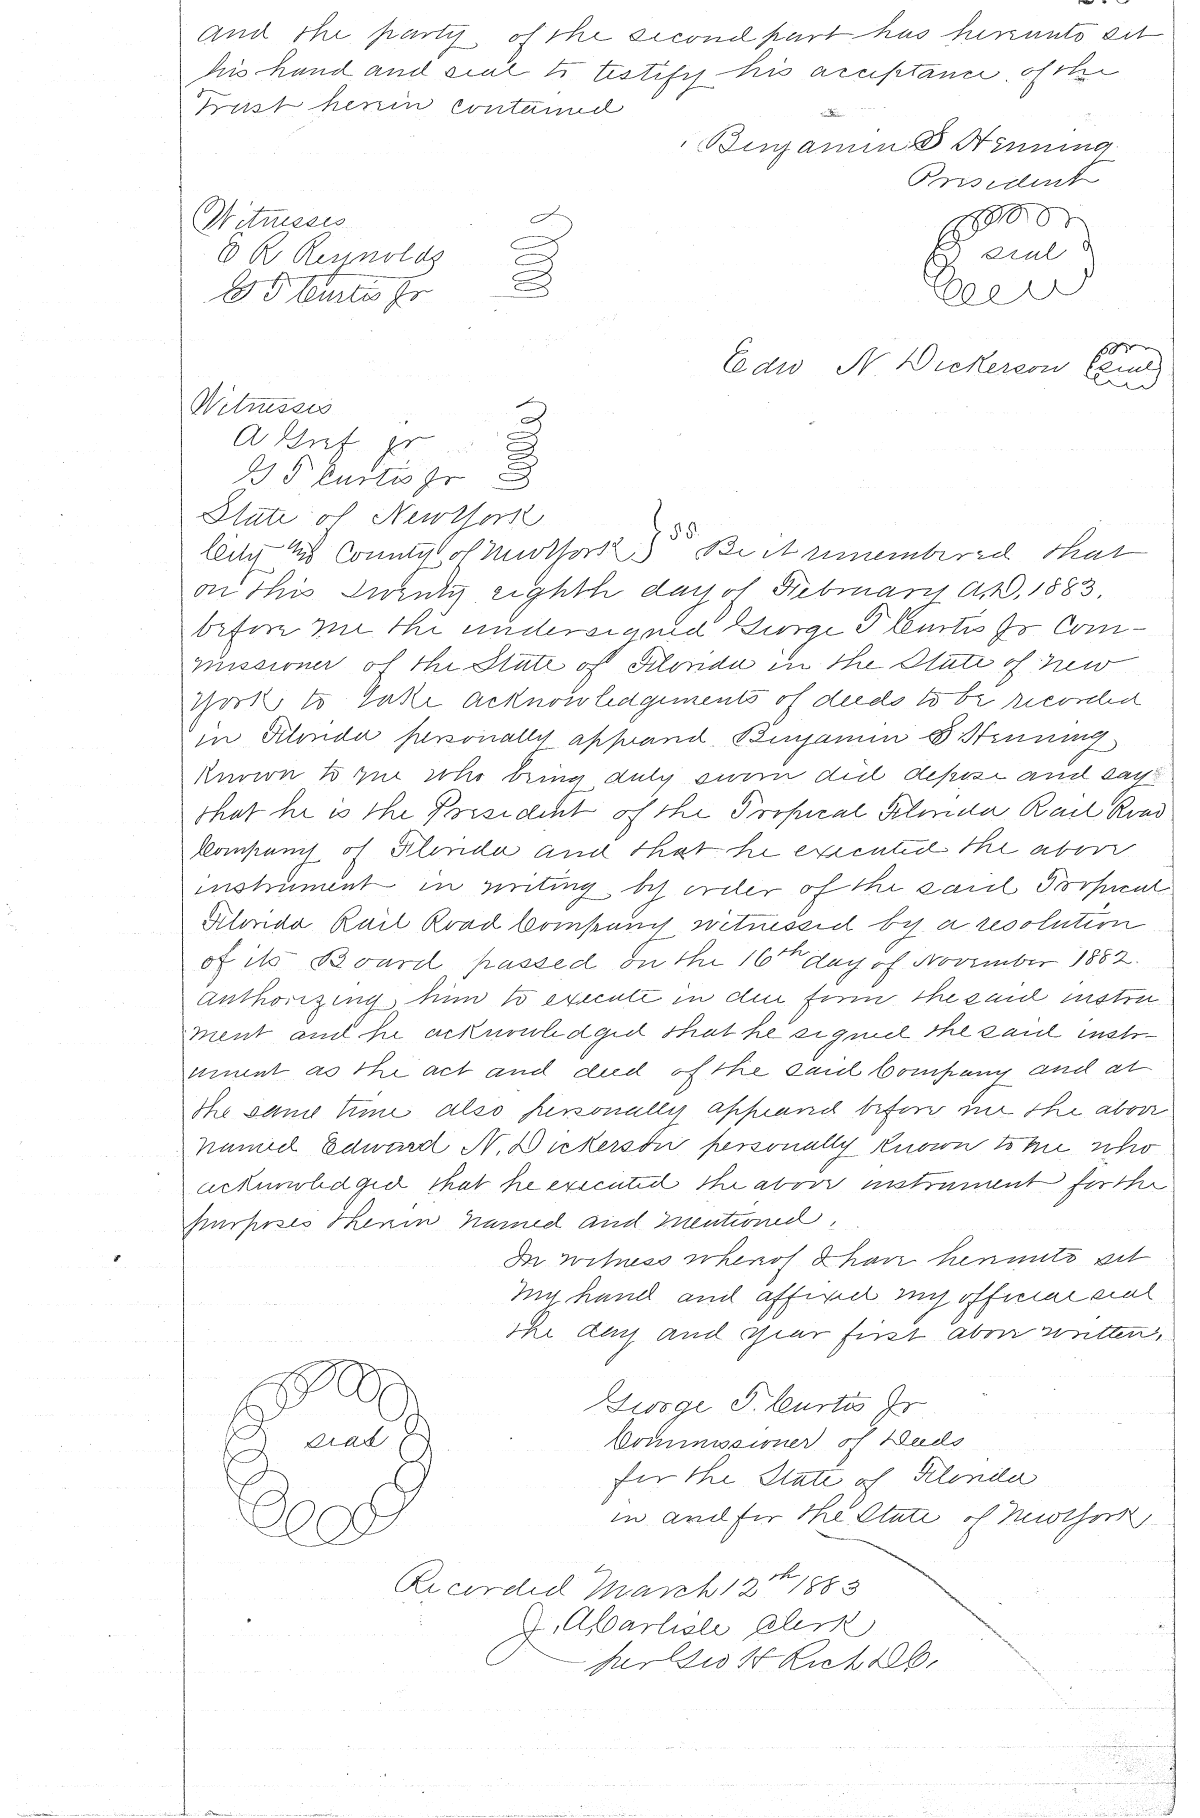 and the party of the second part has hereunto set
his hand and seal to testify his acceptance of the
Trust herein contained
Benjamin S Henning
President
Witnesses
E R Reynolds
G T Curtis Jr
seal
Edw N. Dickerson seal
Witnesses
A Gref jr
G T Curtis Jr
State of New York
City and County of New York } ss Be it remembered that
on this twenty eighth day of February A.D. 1883.
before me the undersigned George T Curtis Jr Com-
missioner of the State of Florida in the State of New
York to take acknowledgements of deeds to be recorded
in Florida personally appeared Benjamin S Henning
Known to me who being duly sworn did depose and say
that he is the President of the Tropical Florida Rail Road
Company of Florida and that he executed the above
instrument in writing by order of the said Tropical
Florida Rail Road Company witnessed by a resolution
of its Board passed on the 16th day of November 1882.
authorizing him to execute in due form the said instru
ment and he acknowledged that he signed the said instr-
ument as the act and deed of the said Company and at
the same time also personally appeared before me the above
named Edward N. Dickerson personally known to me who
acknowledged that he executed the above instrument for the
purposes therein named and mentioned.
In witness whereof I have hereunto set
my hand and affixed my official seal
the day and year first above written.
George T. Curtis Jr
seal
Commissioner of Deeds
for the State of Florida
in and for the State of New York
Recorded March 12th 1883
J. A. Carlisle Clerk
per Geo H Rich D.C.